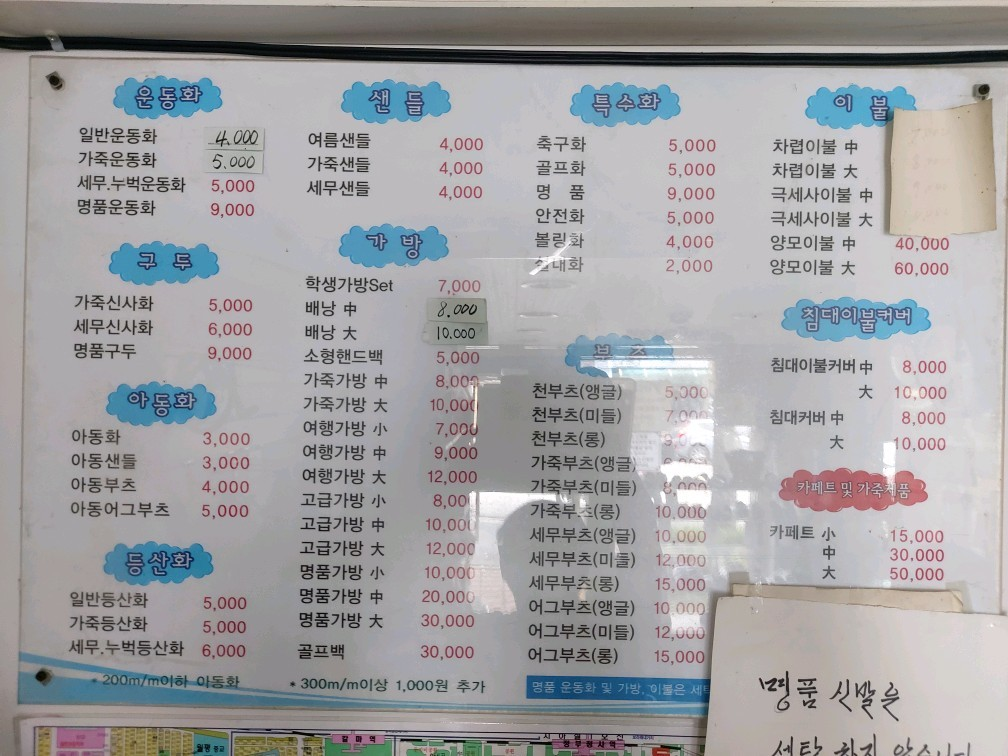 운동화
일반운동화 4.000
가죽운동화 5.000
세무.누벅운동화 5,000
명품운동화 9,000
구두
가죽신사화 5,000
세무신사화 6,000
명품구두 9,000
아동화
아동화 3,000
아동샌들 3,000
아동부츠 4,000
아동어그부츠 5,000
등산화
일반등산화 5,000
가죽등산화 5,000
세무.누벅등산화 6,000
* 200m/m이하 아동화
샌들
여름샌들 4,000
가죽샌들 4,000
세무샌들 4,000
가방
학생가방Set 7,000
배낭 中 8.000
배낭 大 10.000
소형핸드백 5,000
가죽가방 中 8,000
가죽가방 大 10,000
여행가방 小 7,000
여행가방 中 9,000
여행가방 大 12,000
고급가방 小 8,000
고급가방 中 10,000
고급가방 大 12,000
명품가방 小 10,000
명품가방 中 20,000
명품가방 大 30,000
골프백 30,000
* 300m/m이상 1,000원 추가
특수화
축구화 5,000
골프화 5,000
명 품 9,000
안전화 5,000
볼링화 4,000
실내화 2,000
부츠
천부츠(앵글) 5,000
천부츠(미들) 7,000
천부츠(롱)
가죽부츠(앵글)
가죽부츠(미들) 8,000
가죽부츠(롱) 10,000
세무부츠(앵글) 10,000
세무부츠(미들) 12,000
세무부츠(롱) 15,000
어그부츠(앵글) 10,000
어그부츠(미들) 12,000
어그부츠(롱) 15,000
명품 운동화 및 가방, 이불은 세탁
이불
차렵이불 中
차렵이불 大
극세사이불 中
극세사이불 大
양모이불 中 40,000
양모이불 大 60,000
침대이불커버
침대이불커버 中 8,000
大 10,000
침대커버 中 8,000
大 10,000
카페트 및 가죽제품
카페트 小 15,000
中 30,000
大 50,000
명품 신발은
세탁 하지 않습니다
갈마역
정부청사역